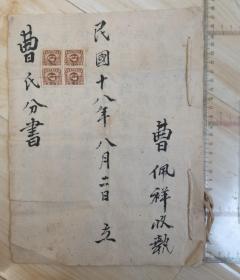 曹佩祥收執
民國十八年八月二日 立
曹氏分書